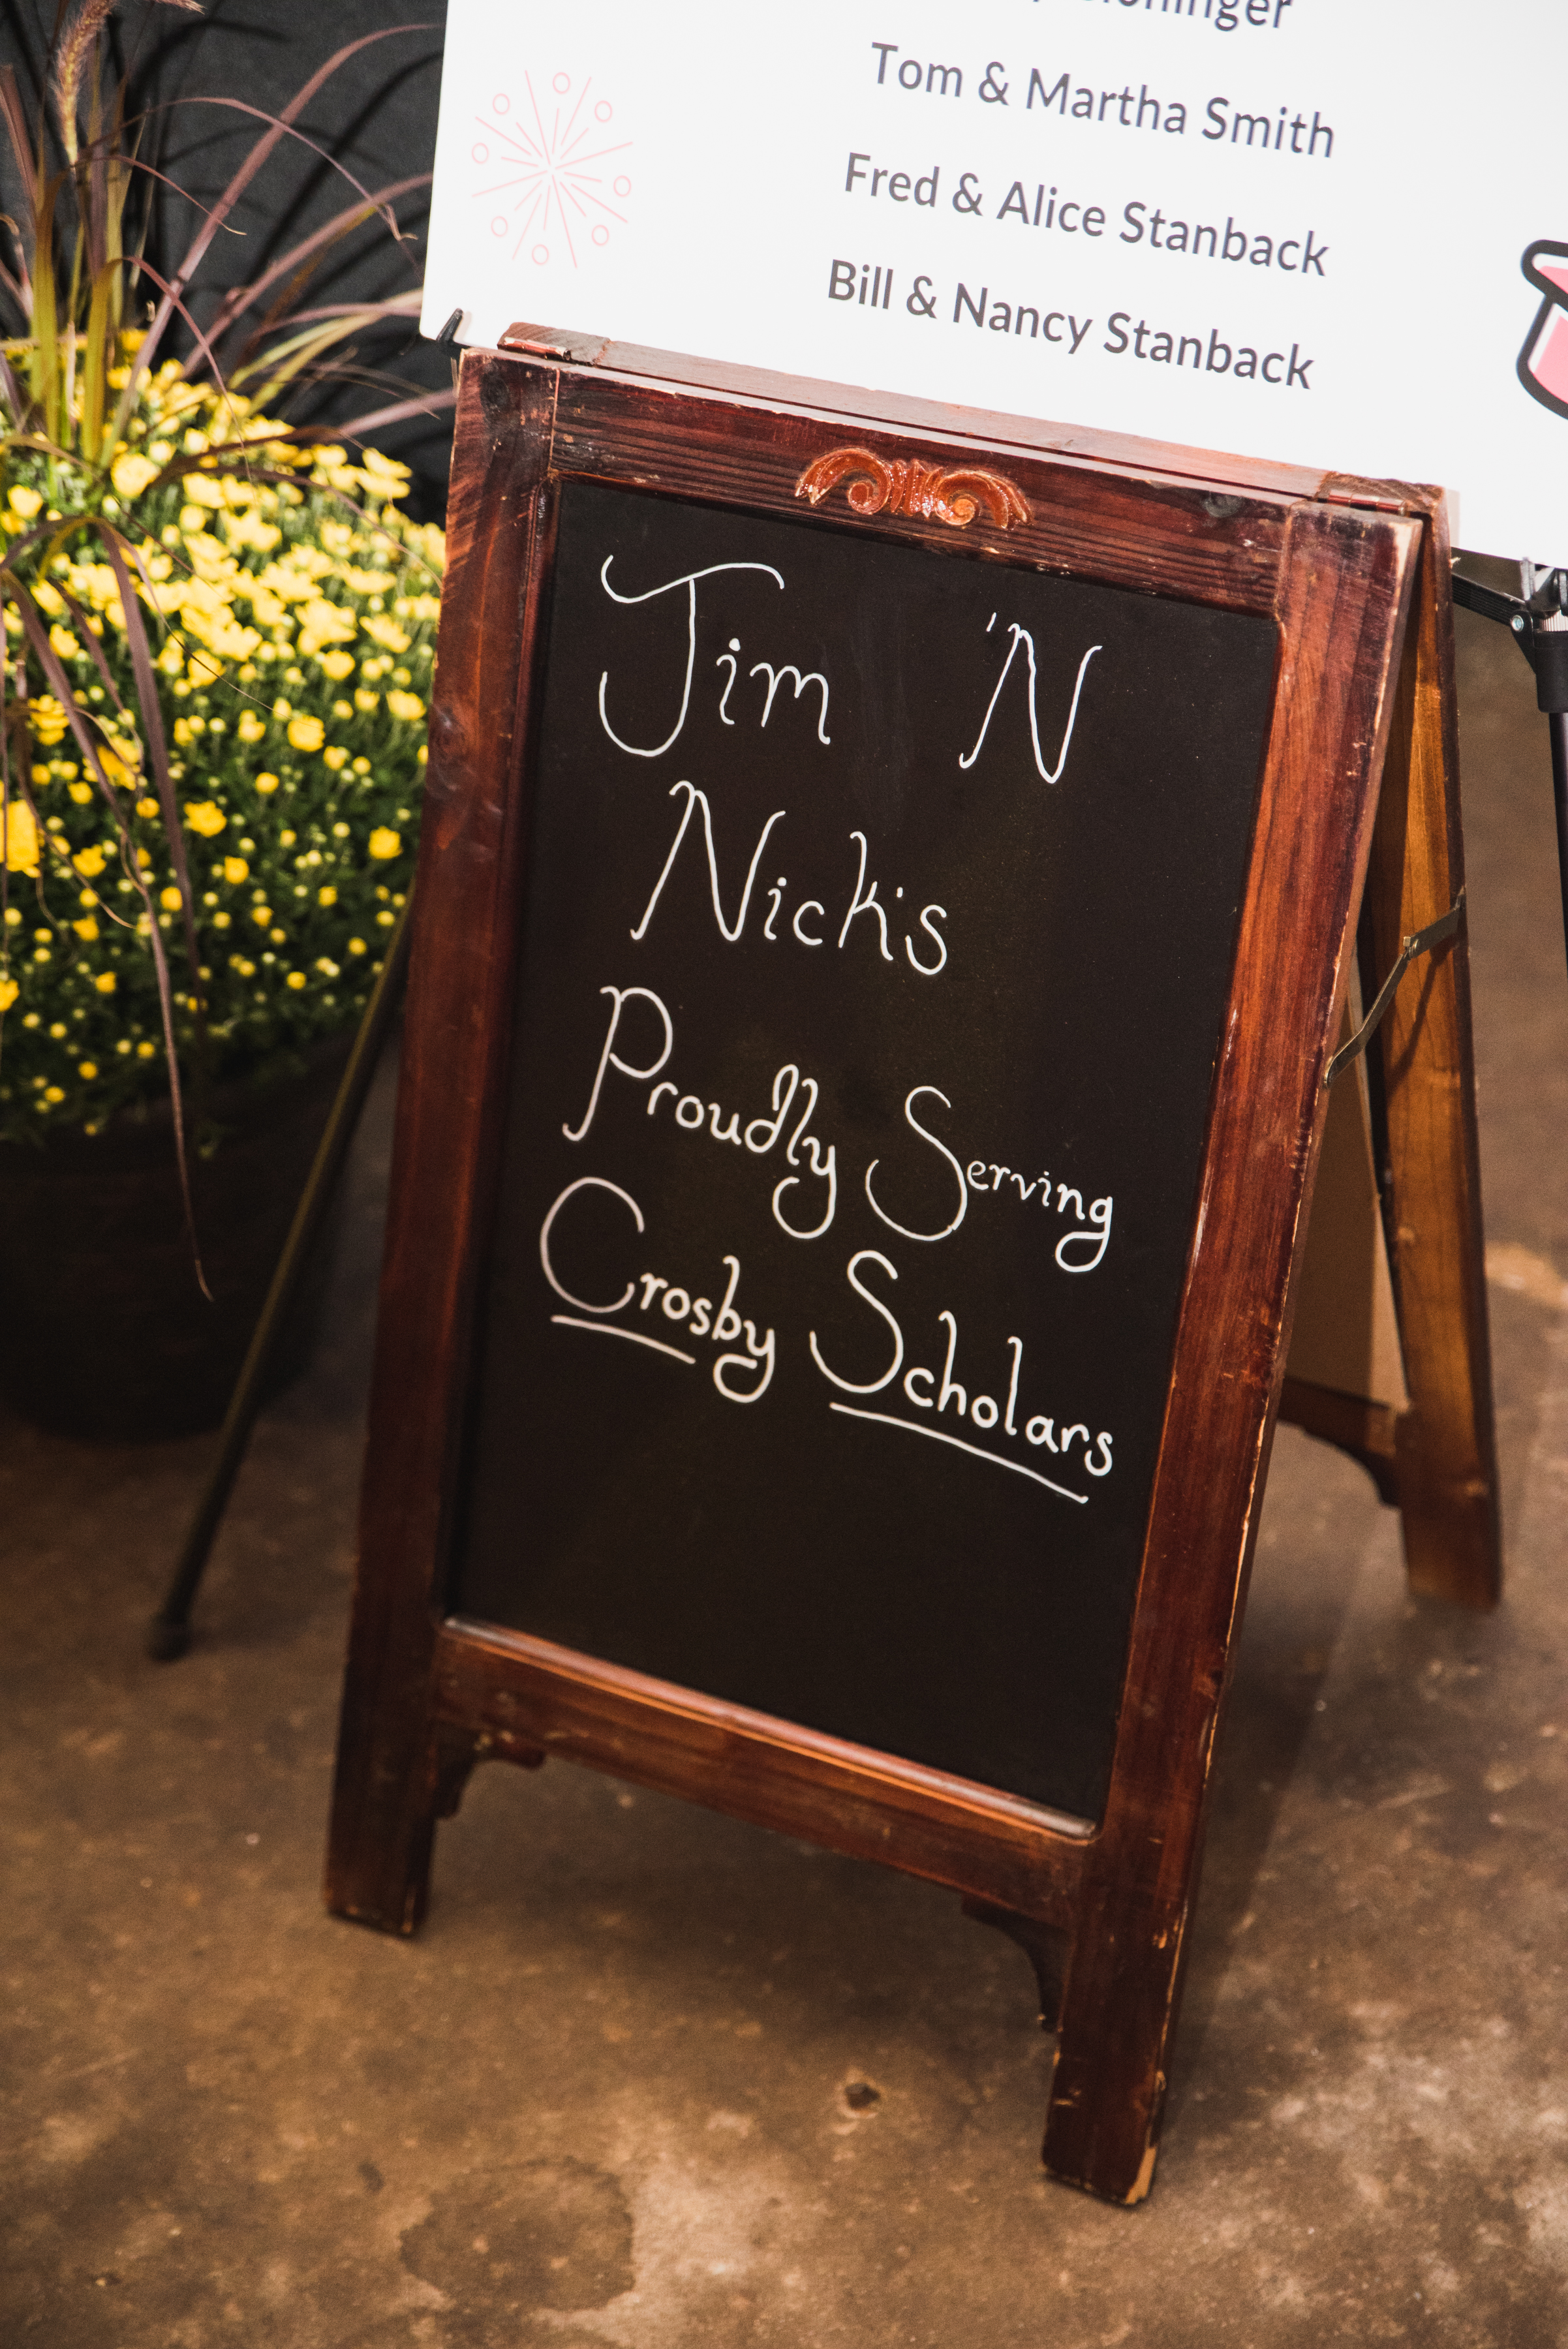 Tom & Martha Smith
Fred & Alice Stanback
Bill & Nancy Stanback
Jim 'N
Nick's
Proudly Serving
Crosby Scholars